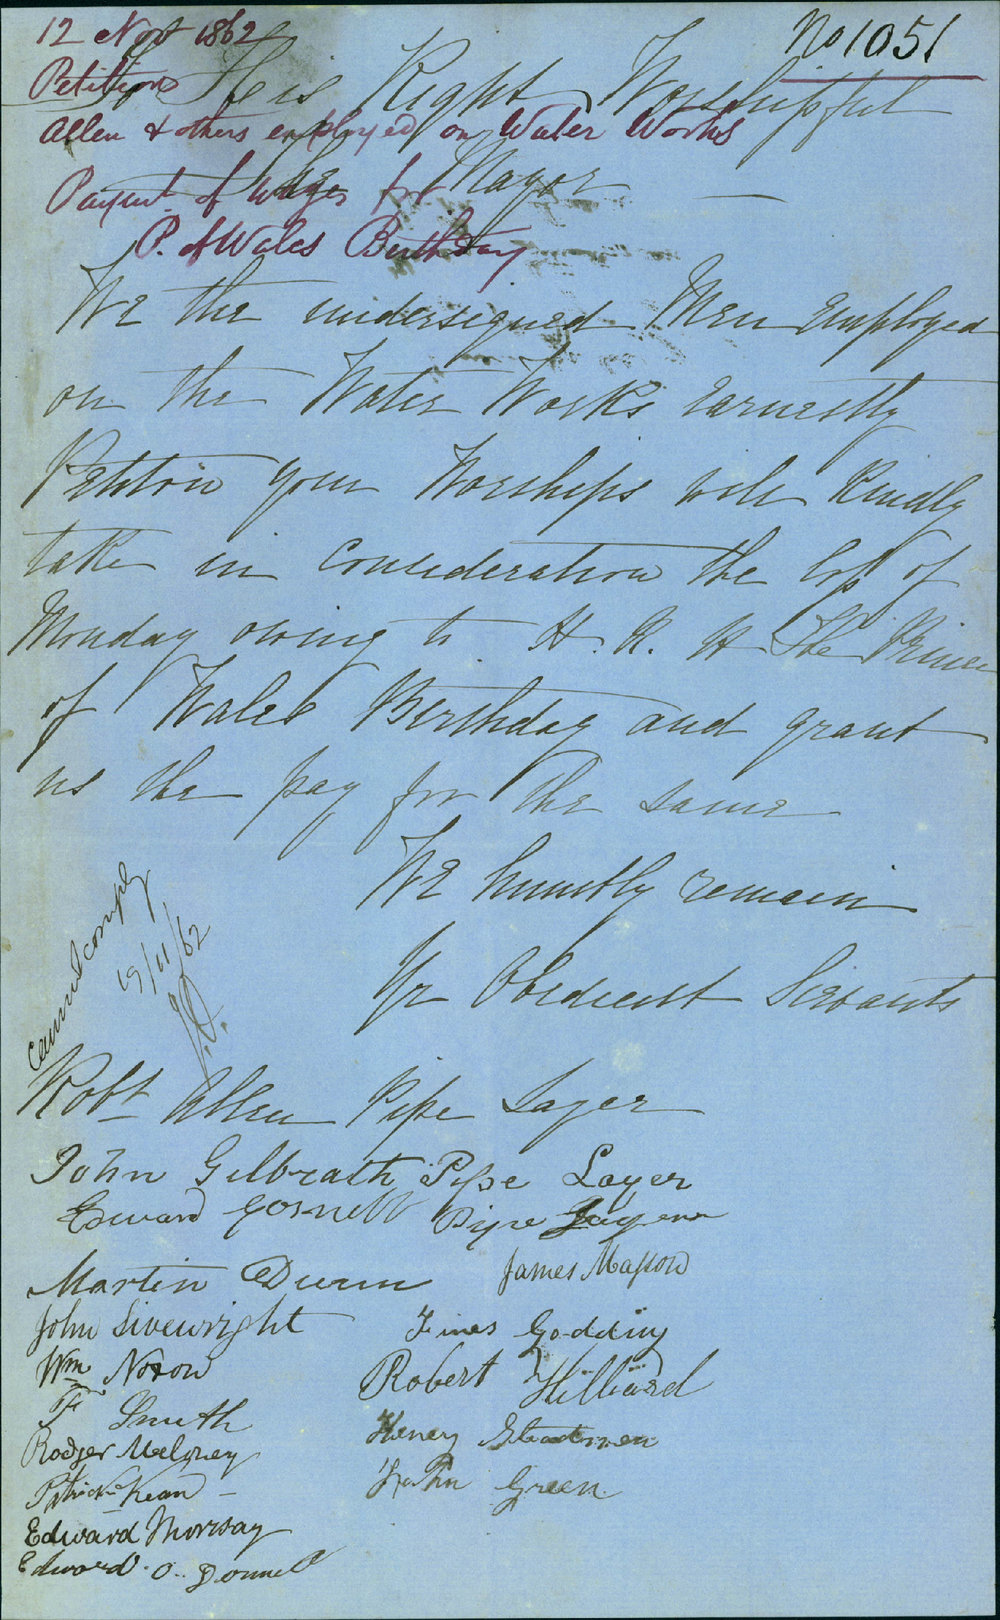 12 Novr 1862
No 1051
Petition
Allen & others employed on Water Works
Payment of Wages for
P. of Wales Birthday
To His Right Worshipful
The Mayor
We the undersigned Men Employed
on the Water Works Earnestly
Petition your Worships will Kindly
take in Consideration the loss of
Monday owing to H. R. H The Prince
of Wales Birthday and grant
us the pay for the same
We humbly remain
Yr Obedient Servants
cannot comply
19/11/62
Robt Allen Pipe Layer
John Gilbrath Pipe Layer
Edward Gosnell Pipe Layer
Martin Dunn
James Masson
John Sivewright
James Godding
Wm Noxon
Robert Hilliard
F Smith
Henry Steadmen
Rodger Meloney
John Green
Patrick Kean
Edward Morway
Edward O Donnell